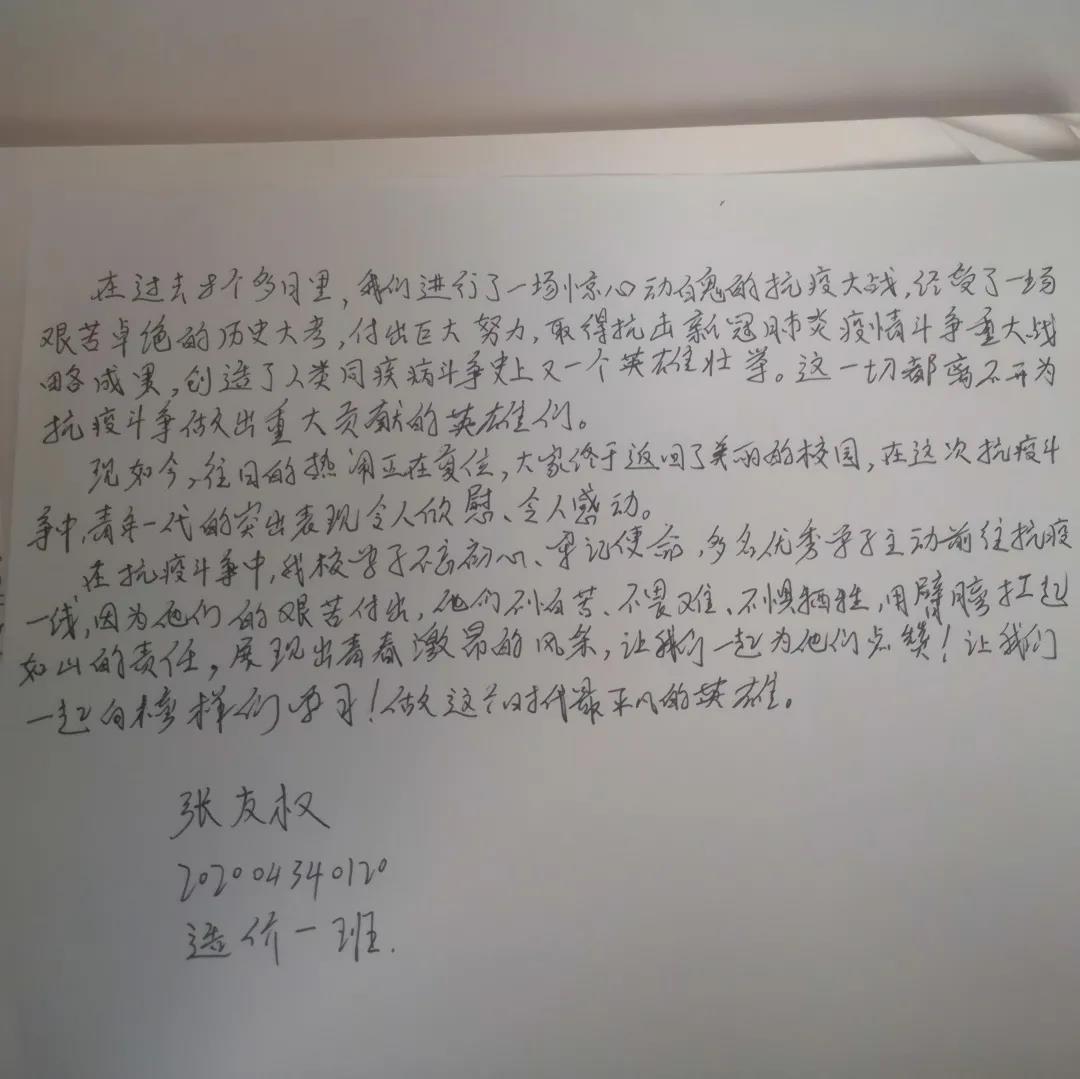 在过去8个多月里,我们进行了一场惊心动魄的抗疫大战,经受了一场
艰苦卓绝的历史大考,付出巨大努力,取得抗击新冠肺炎疫情斗争重大战
略成果,创造了人类同疾病斗争史上又一个英雄壮举。这一切都离不开为
抗疫斗争做出重大贡献的英雄们。
现如今,往日的热闹正在复位,大家终于返回了美丽的校园,在这次抗疫斗
争中,青年一代的突出表现令人欣慰、令人感动。
在抗疫斗争中,我校学子不忘初心、牢记使命,多名优秀学子主动前往抗疫
一线,因为他们的艰苦付出,他们不怕苦、不畏难、不惧牺牲,用臂膀扛起
如山的责任,展现出青春激昂的风采,让我们一起为他们点赞!让我们
一起向榜样们学习!做这个时代最平凡的英雄。
张友权
202004340120
造价一班.